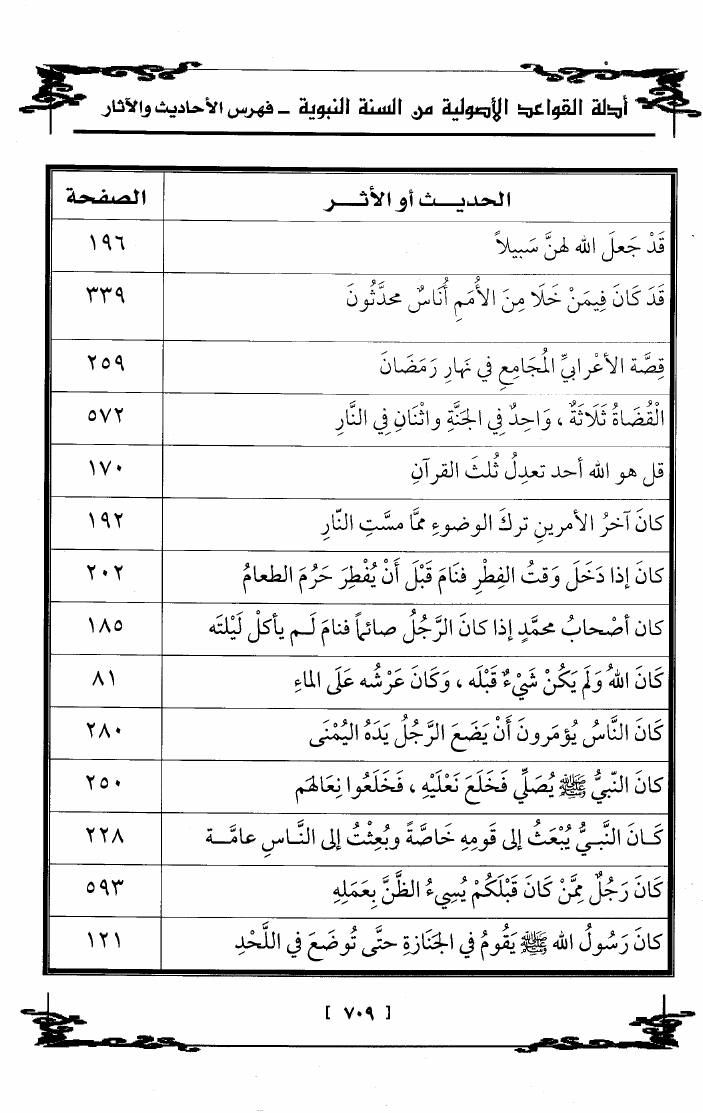 أدلة القواعد الأصولية من السنة النبوية ـ فهرس الأحاديث والآثار
الحديـــث أو الأثـــر الصفحة
قَدْ جَعلَ الله لهنَّ سَبيلاً ١٩٦
قَدَ كَانَ فِيمَنْ خَلَا مِنَ الأُمَمِ أُنَاسٌ محدَّثُونَ ٣٣٩
قِصَّة الأعْرابيِّ المُجَامِعِ في نهارِ رَمَضَانَ ٢٥٩
الْقُضَاةُ ثَلَاثَةٌ ، وَاحِدٌ فِي الجَنَّةِ واثْنَانِ فِي النَّارِ ٥٧٢
قل هو الله أحد تعدِلُ ثُلثَ القرآنِ ١٧٠
كانَ آخرُ الأمرينِ تركَ الوضوءِ ممَّا مسَّتِ النّارِ ١٩٢
كانَ إذا دَخَلَ وَقتُ الفِطْرِ فنَامَ قَبْلَ أَنْ يُفْطِرَ حَرُمَ الطعامُ ٢٠٢
كان أصْحابُ محمَّدٍ إذا كانَ الرَّجُلُ صائماً فنامَ لَـم يأكلْ لَيْلتَه ١٨٥
كَانَ اللهُ وَلَم يَكُنْ شَيْءٌ قَبْلَه ، وَكَانَ عَرْشُه عَلَى الماءِ ٨١
كَانَ النَّاسُ يُؤمَرونَ أَنْ يَضَعَ الرَّجُلُ يَدَهُ اليُمْنَى ٢٨٠
كانَ النّبيُّ ﷺ يُصَلِّي فَخَلَعَ نَعْلَيْهِ ، فَخَلَعُوا نِعَالهَم ٢٥٠
كَـانَ النَّبـيُّ يُبْعَثُ إلى قَومِهِ خَاصَّةً وبُعِثْتُ إلى النَّـاسِ عامَّـة ٢٢٨
كَانَ رَجُلٌ مِمَّنْ كَانَ قَبْلَكُمْ يُسِيءُ الظَّنَّ بِعَمَلِهِ ٥٩٣
كانَ رَسُولُ الله ﷺ يَقُومُ في الجَنَازةِ حتَّى تُوضَعَ في اللَّحْدِ ١٢١
[ ٧٠٩ ]